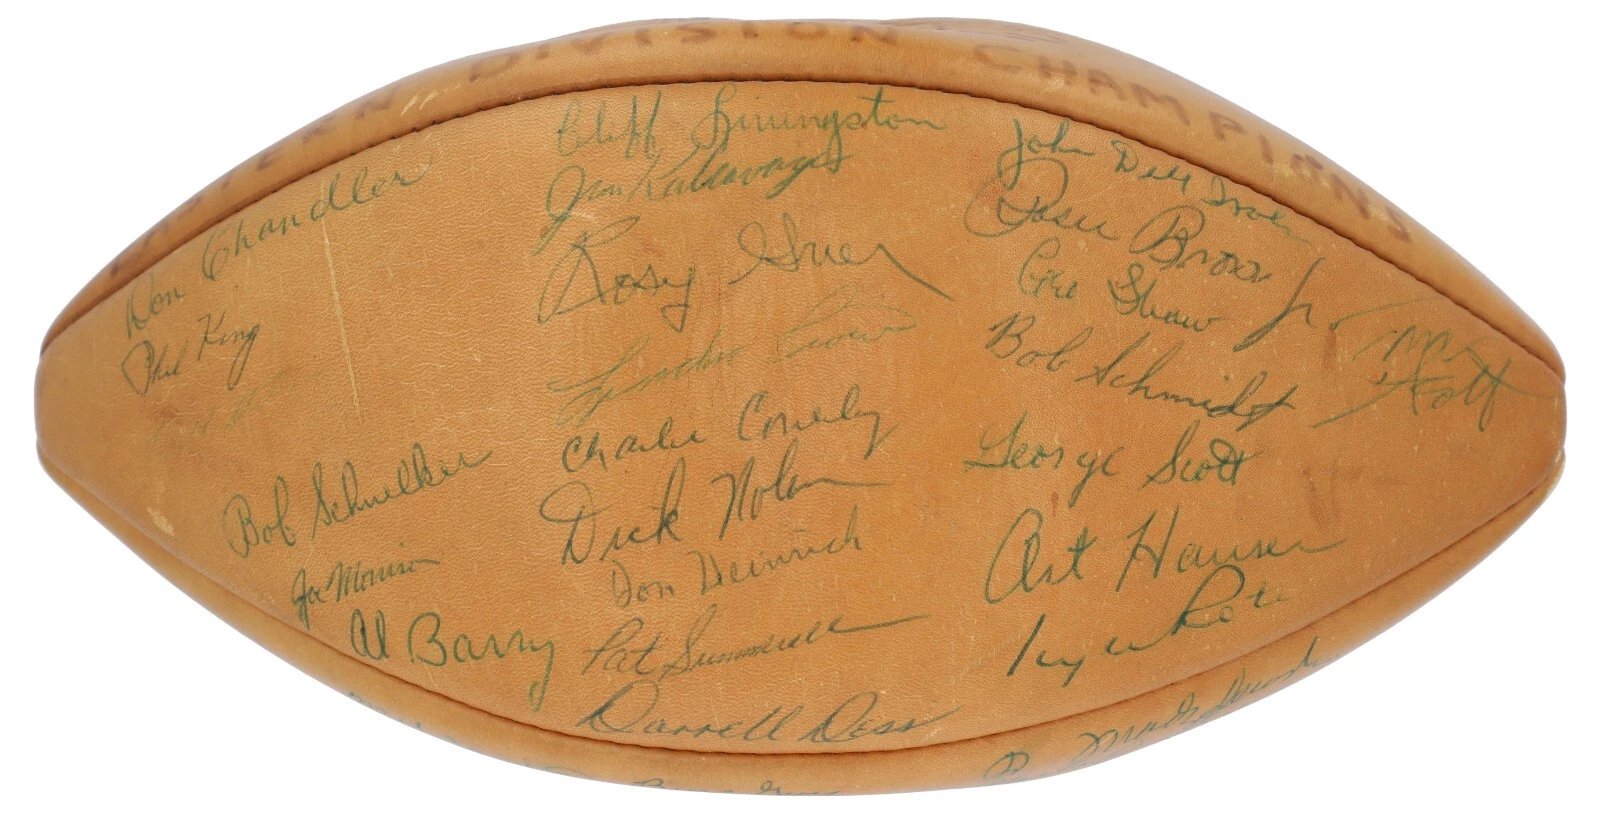 DIVISION CHAMPIONS
Don Chandler
Phil King
Bob Schnelker
Joe Morrison
Al Barry
Cliff Livingston
Jim Katcavage
Rosy Grier
Lindon Crow
Charlie Conerly
Dick Nolan
Don Heinrich
Pat Summerall
Darrell Dess
John Dell Isola
Rosie Brown Jr.
Geo Shaw
Bob Schmidt
George Scott
Art Hauser
Kyle Rote
Mel Triplett